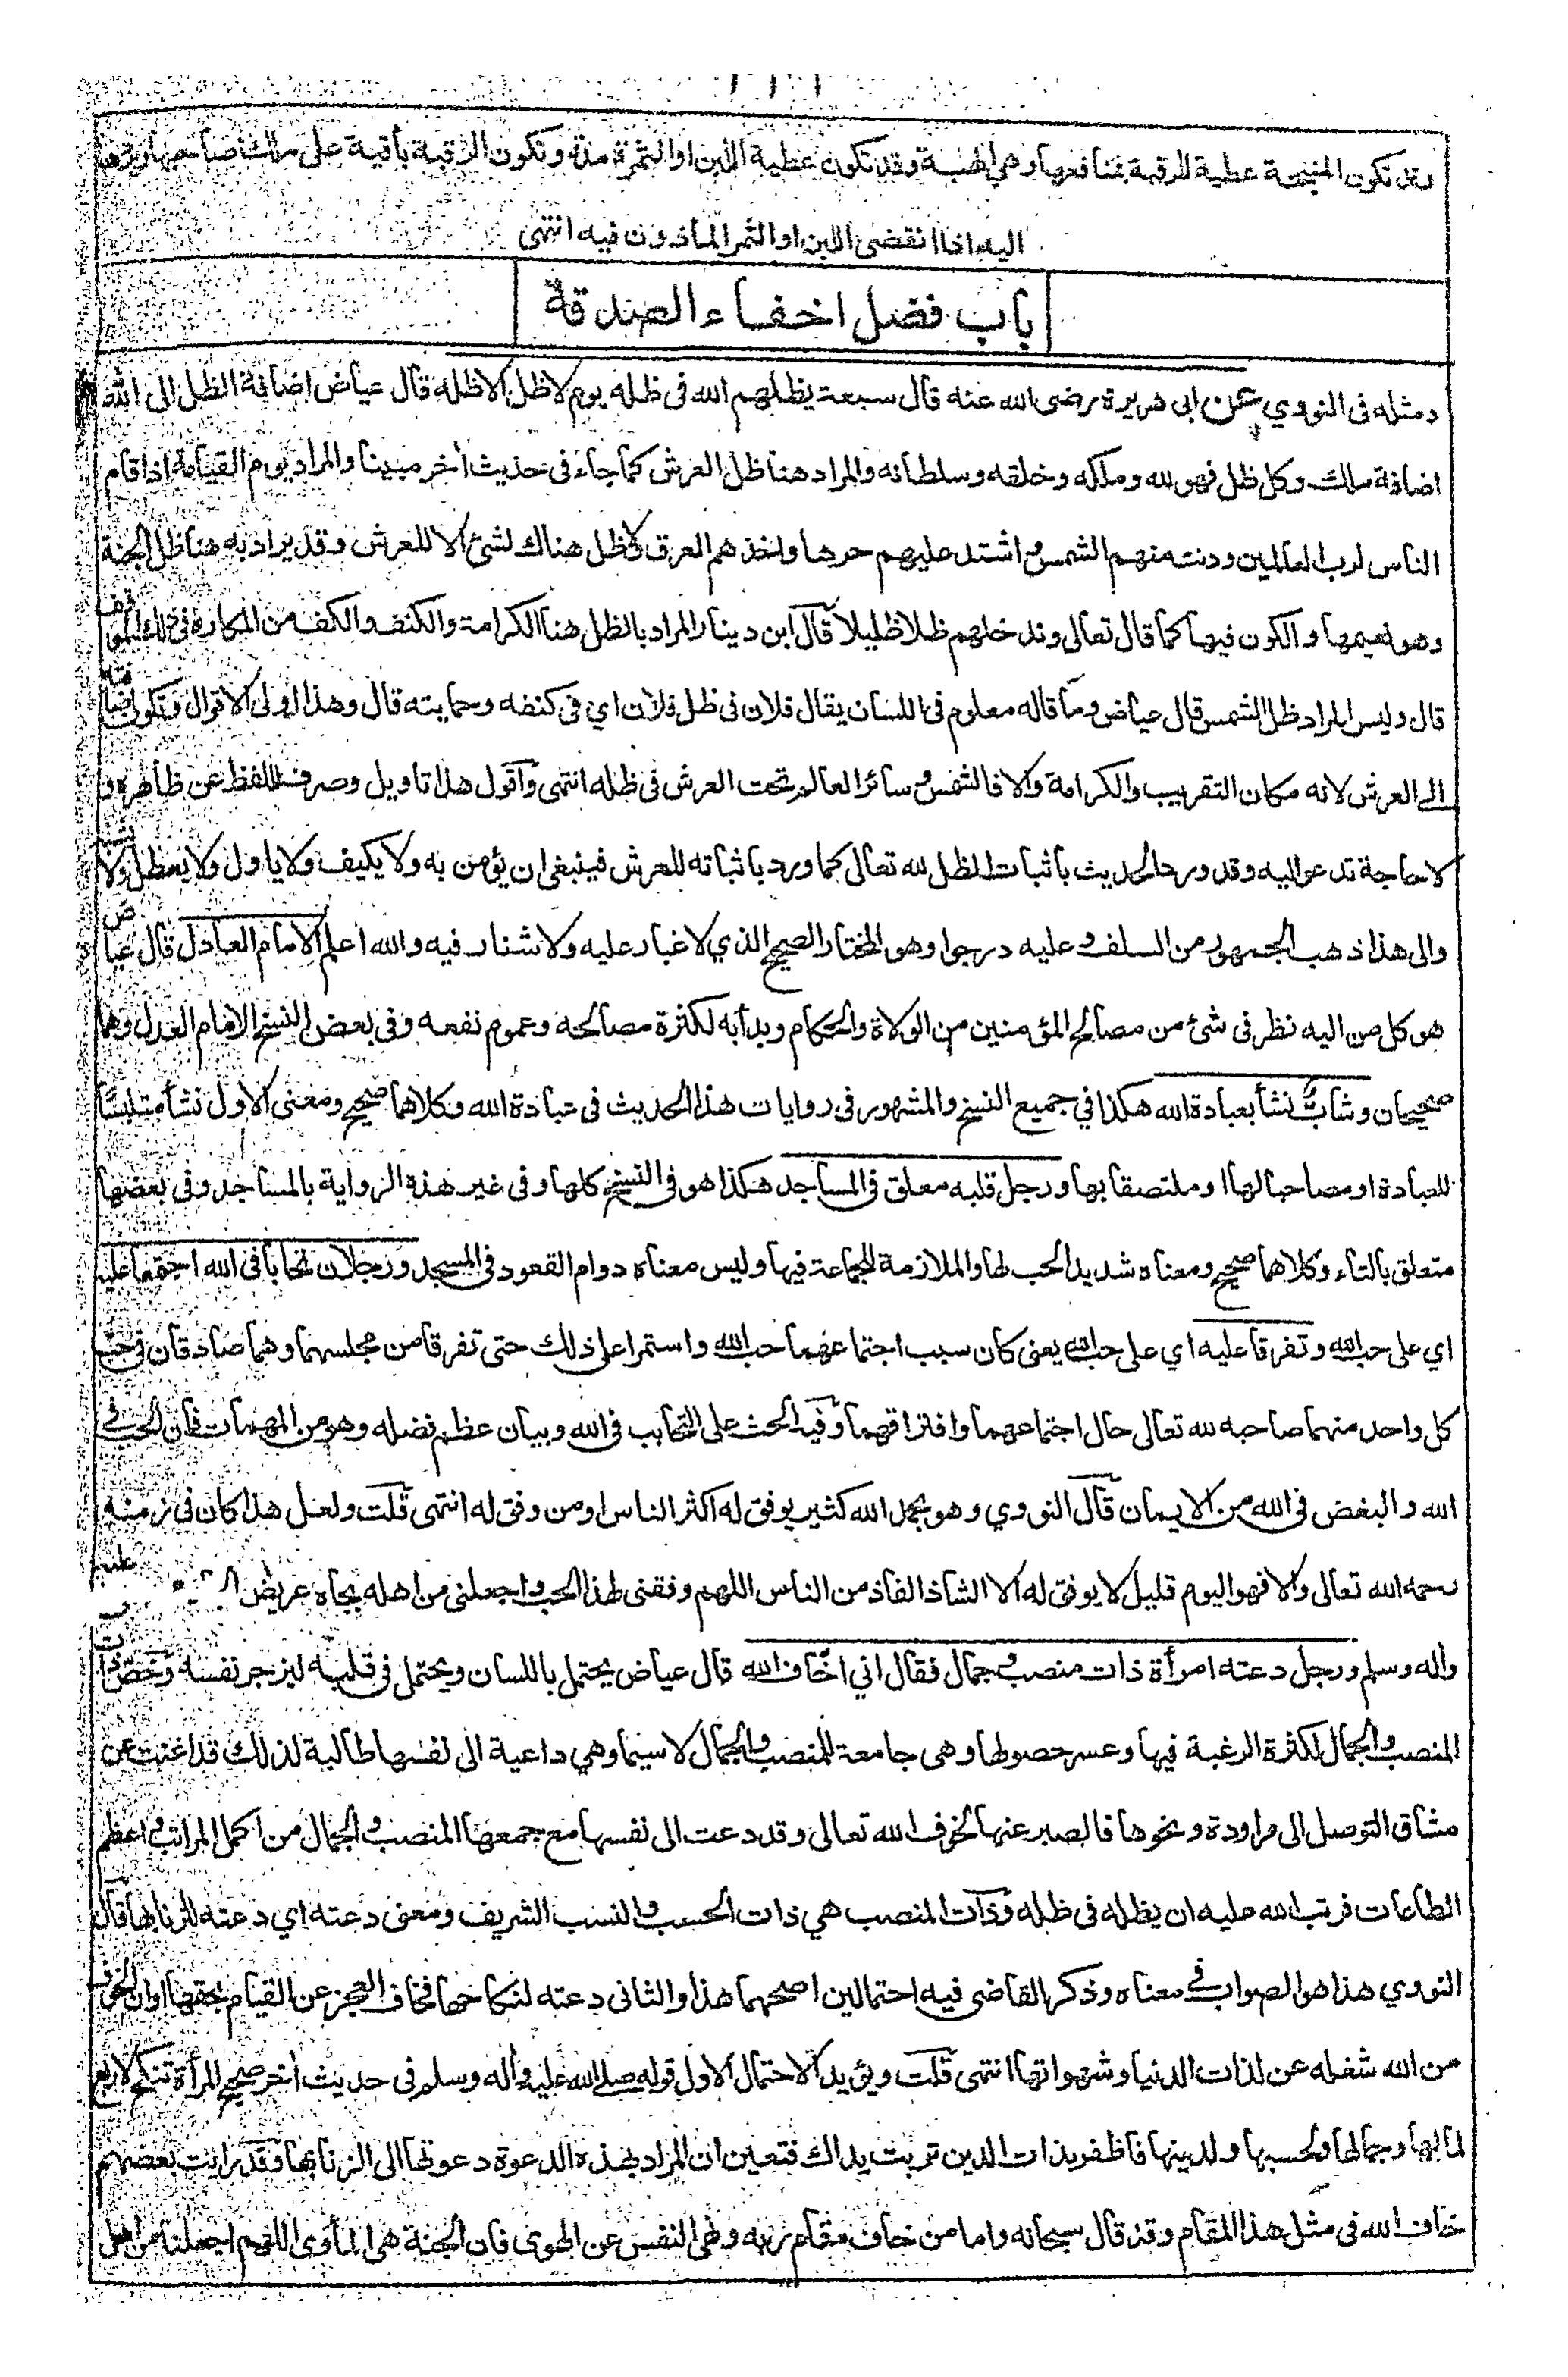 وقد تكون المنيحة عطية للرقبة بمنافعها وهي الهبة وقد تكون عطية اللبن او الثمرة مدة وتكون الرقبة باقية على ملك صاحبها ويردها
اليه اذا انقضى اللبن او الثمر الماذون فيه انتهى
باب فضل اخفاء الصدقة
ومثله فى النووي عن ابى هريرة رضى الله عنه قال سبعة يظلهم الله فى ظله يوم لا ظل الا ظله قال عياض اضافة الظل الى الله
اضافة ملك وكل ظل فهو لله وملكه وخلقه وسلطانه والمراد هنا ظل العرش كما جاء فى حديث اخر مبينا والمراد يوم القيامة اذا قام
الناس لرب العالمين ودنت منهم الشمس واشتد عليهم حرها واخذهم العرق لا ظل هناك لشئ الا للعرش وقد يراد به هنا ظل الجنة
وهو نعيمها والكون فيها كما قال تعالى وندخلهم ظلا ظليلا قال ابن دينار المراد بالظل هنا الكرامة والكنف والكف من المكاره فى ذلك الموقف
قال وليس المراد ظل الشمس قال عياض وما قاله معلوم فى اللسان يقال فلان فى ظل فلان اي فى كنفه وحمايته قال وهذا اولى الاقوال وتكون اضافته
الى العرش لانه مكان التقريب والكرامة والا فالشمس وسائر العالم تحت العرش فى ظله انتهى واقول هذا تاويل وصرف للفظ عن ظاهره و
لا حاجة تدعو اليه وقد ورد الحديث باثبات الظل لله تعالى كما ورد باثباته للعرش فينبغى ان يؤمن به ولا يكيف ولا ياول ولا يعطل ولا
والى هذا ذهب الجمهور من السلف وعليه درجوا وهو المختار الصحيح الذي لا غبار عليه ولا شنار فيه والله اعلم الامام العادل قال عياض
هو كل من اليه نظر فى شئ من مصالح المؤمنين من الولاة والحكام وبدأ به لكثرة مصالحه وعموم نفعه وفى بعض النسخ الامام العدل وهما
صحيحان وشاب نشأ بعبادة الله هكذا في جميع النسخ والمشهور فى روايات هذا الحديث فى عبادة الله وكلاهما صحيح ومعنى الاول نشأ متلبسا
للعبادة او مصاحبا لها او ملتصقا بها ورجل قلبه معلق فى المساجد هكذا هو فى النسخ كلها وفى غير هذه الرواية بالمساجد وفى بعضها
متعلق بالتاء وكلاهما صحيح ومعناه شديد الحب لها والملازمة للجماعة فيها وليس معناه دوام القعود فى المسجد ورجلان تحابا فى الله اجتمعا عليه
اي على حب الله وتفرقا عليه اي على حب الله يعنى كان سبب اجتماعهما حب الله واستمرا على ذلك حتى تفرقا من مجلسهما وهما صادقان فى حب
كل واحد منهما صاحبه لله تعالى حال اجتماعهما وافتراقهما وفيه الحث على التحابب فى الله وبيان عظم فضله وهو من المهمات فان الحب فى
الله والبغض فى الله من الايمان قال النووي وهو بحمد الله كثير يوفق له اكثر الناس او من وفق له انتهى قلت ولعل هذا كان فى زمنه
رحمه الله تعالى والا فهو اليوم قليل لا يوفق له الا الشاذ الفاذ من الناس اللهم وفقنى لهذا الحب واجعلنى من اهله بجاه عريض
واله وسلم ورجل دعته امرأة ذات منصب وجمال فقال اني اخاف الله قال عياض يحتمل باللسان ويحتمل فى قلبه ليزجر نفسه وخص ذات
المنصب والجمال لكثرة الرغبة فيها وعسر حصولها وهى جامعة للمنصب والجمال لا سيما وهي داعية الى نفسها طالبة لذلك قد اغنت عن
مشاق التوصل الى مراودة ونحوها فالصبر عنها لخوف الله تعالى وقد دعت الى نفسها مع جمعها المنصب والجمال من اكمل المراتب واعظم
الطاعات فرتب الله عليه ان يظله فى ظله وذات المنصب هي ذات الحسب والنسب الشريف ومعنى دعته اي دعته للزنا بها قال
النووي هذا هو الصواب فى معناه وذكر القاضى فيه احتمالين اصحهما هذا والثانى دعته لنكاحها فخاف العجز عن القيام بحقها او ان الخوف
من الله شغله عن لذات الدنيا وشهواتها انتهى قلت ويؤيد الاحتمال الاول قوله صلى الله عليه وأله وسلم فى حديث أخر صحيح المرأة تنكح لاربع
لمالها وجمالها ولحسبها ولدينها فاظفر بذات الدين تربت يداك فتعين ان المراد بهذه الدعوة دعوتها الى الزنا بها وقد رايت بعضهم
خاف الله فى مثل هذا المقام وقد قال سبحانه واما من خاف مقام ربه ونهى النفس عن الهوى فان الجنة هى المأوى اللهم اجعلنا من اهل